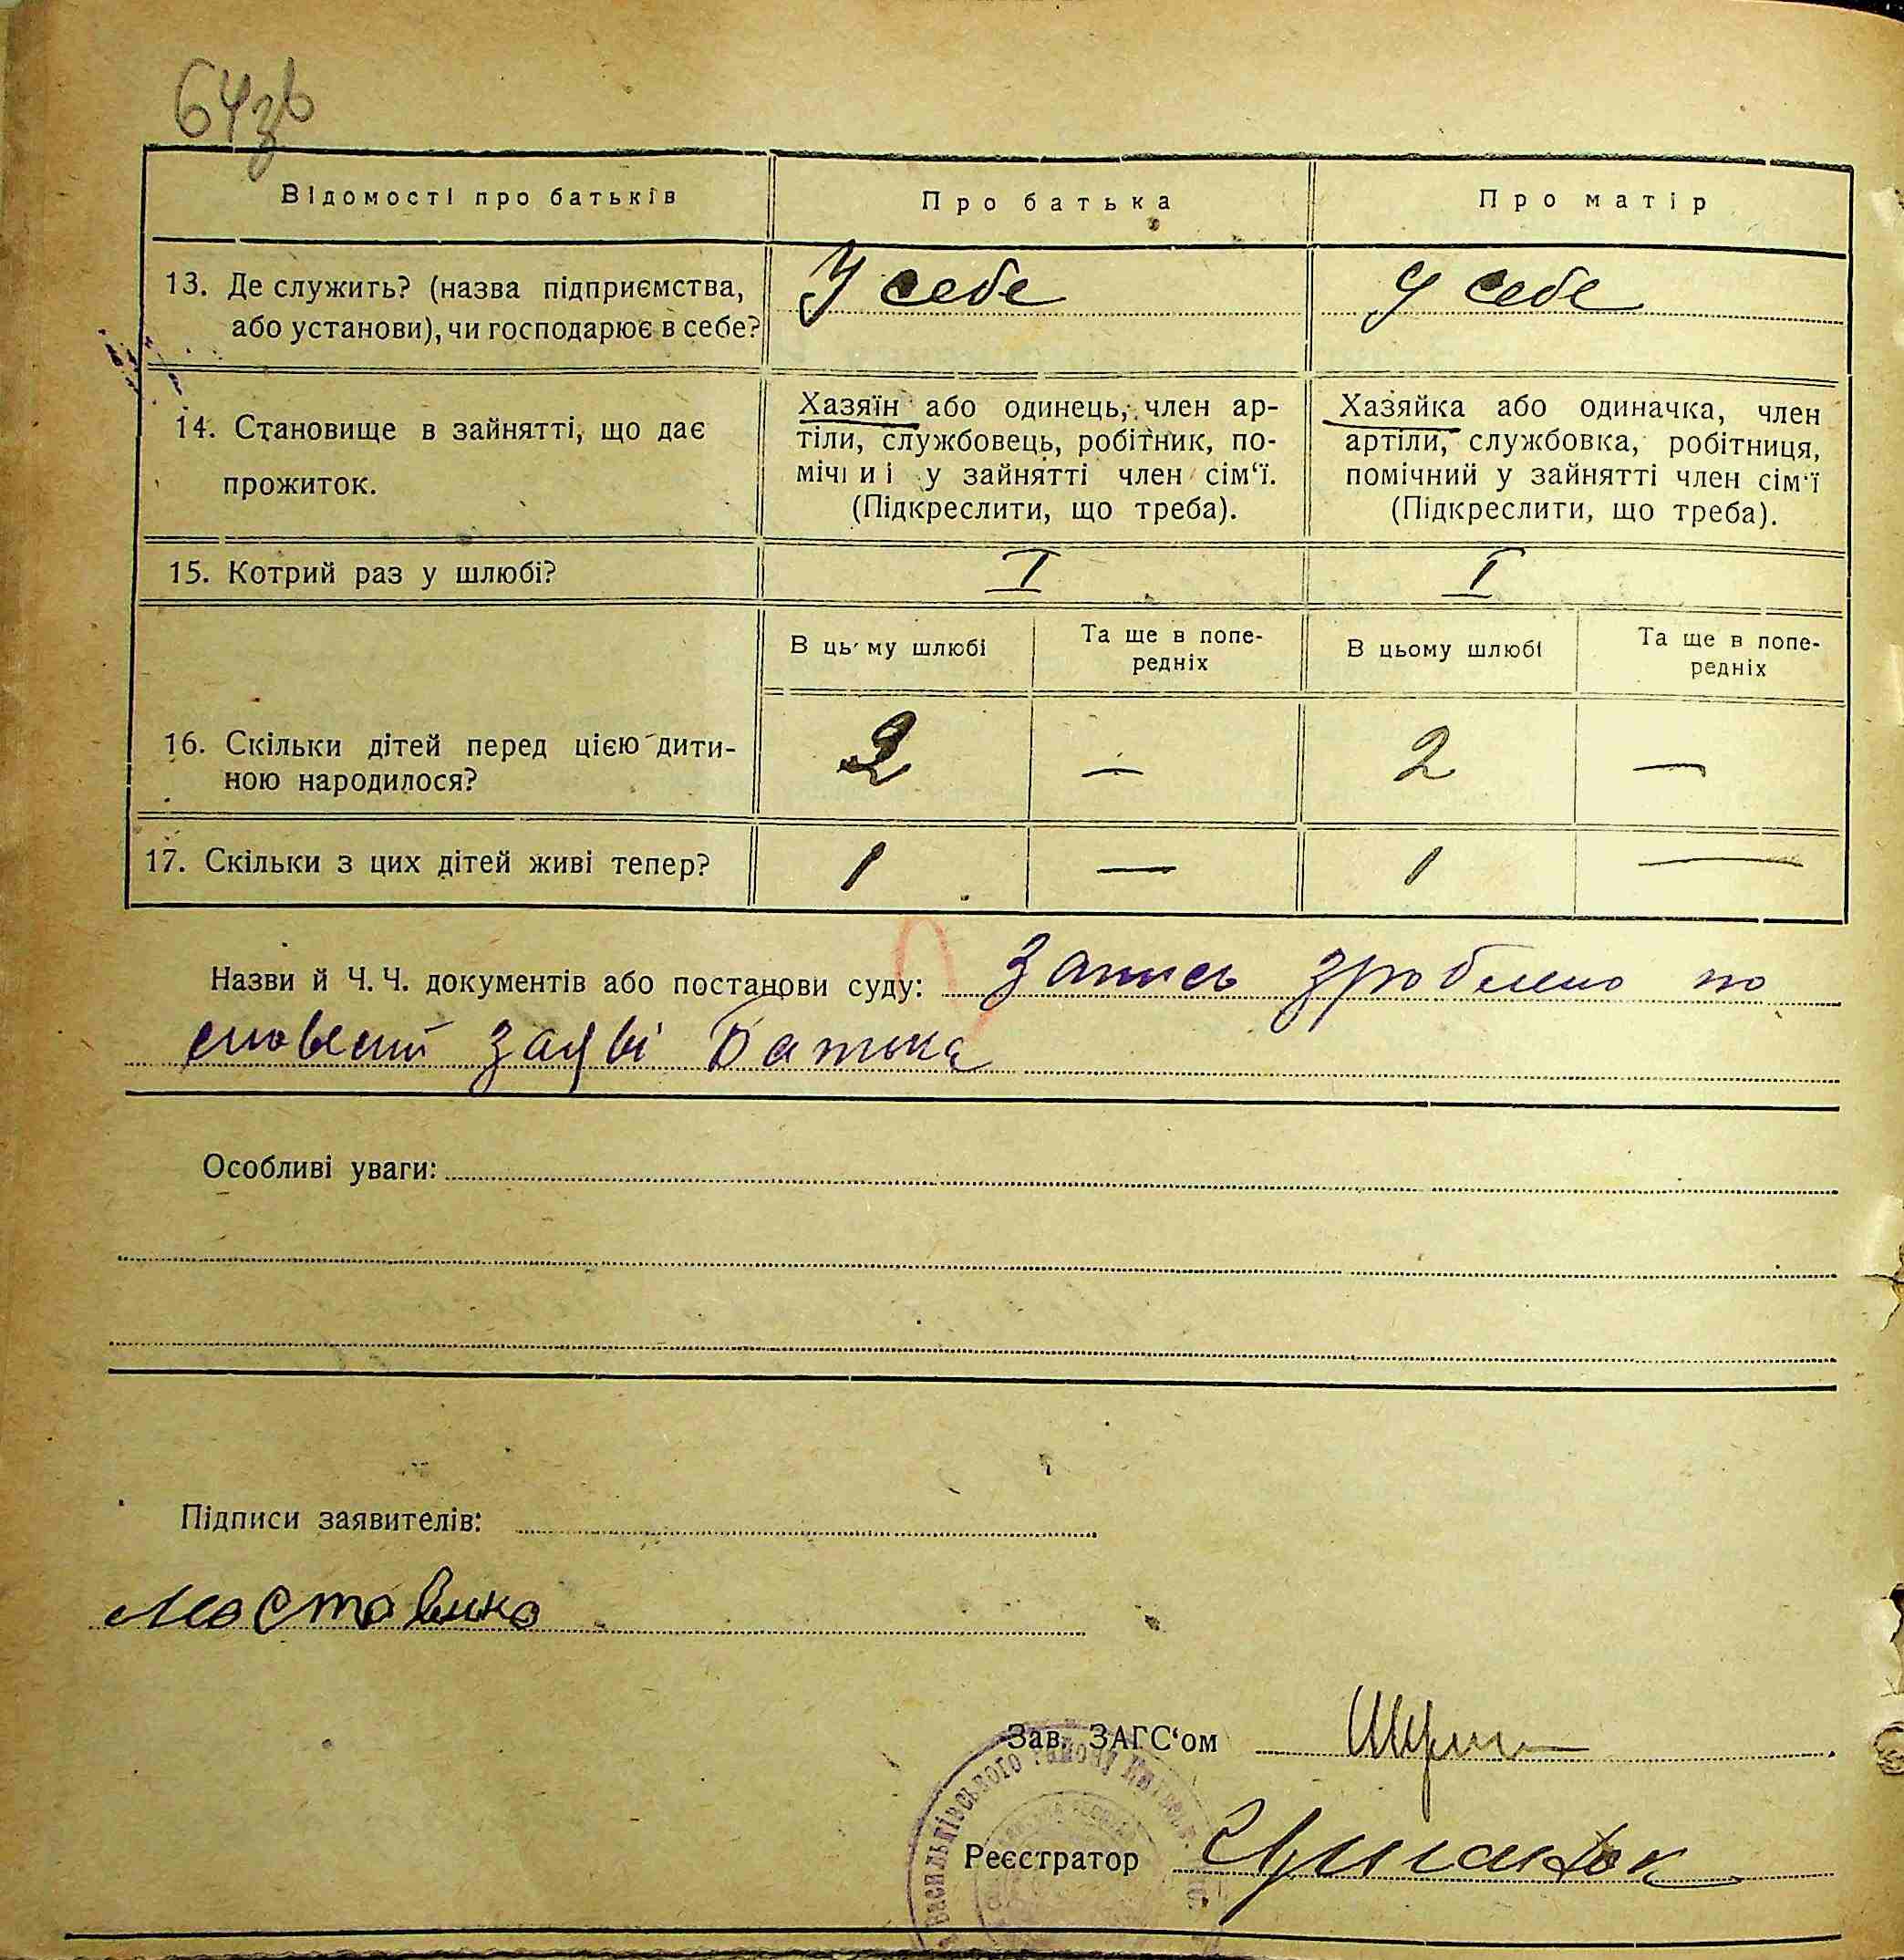 64зв
Відомості про батьків
Про батька
Про матір
13. Де служить? (назва підприємства,
або установи), чи господарює в себе?
У себе
У себе
14. Становище в зайнятті, що дає
прожиток.
Хазяїн або одинець, член ар-
тіли, службовець, робітник, по-
мічний у зайнятті член сім'ї.
(Підкреслити, що треба).
Хазяйка або одиначка, член
артіли, службовка, робітниця,
помічний у зайнятті член сім'ї
(Підкреслити, що треба).
15. Котрий раз у шлюбі?
I
I
В цьому шлюбі
Та ще в попе-
редніх
В цьому шлюбі
Та ще в попе-
редніх
16. Скільки дітей перед цією дити-
ною народилося?
2
—
2
—
17. Скільки з цих дітей живі тепер?
1
—
1
—
Назви й Ч. Ч. документів або постанови суду: Запись зроблено по
словесній заяві Батька
Особливі уваги:
Підписи заявителів:
Зав. ЗАГС'ом
Васильківського району
Реєстратор